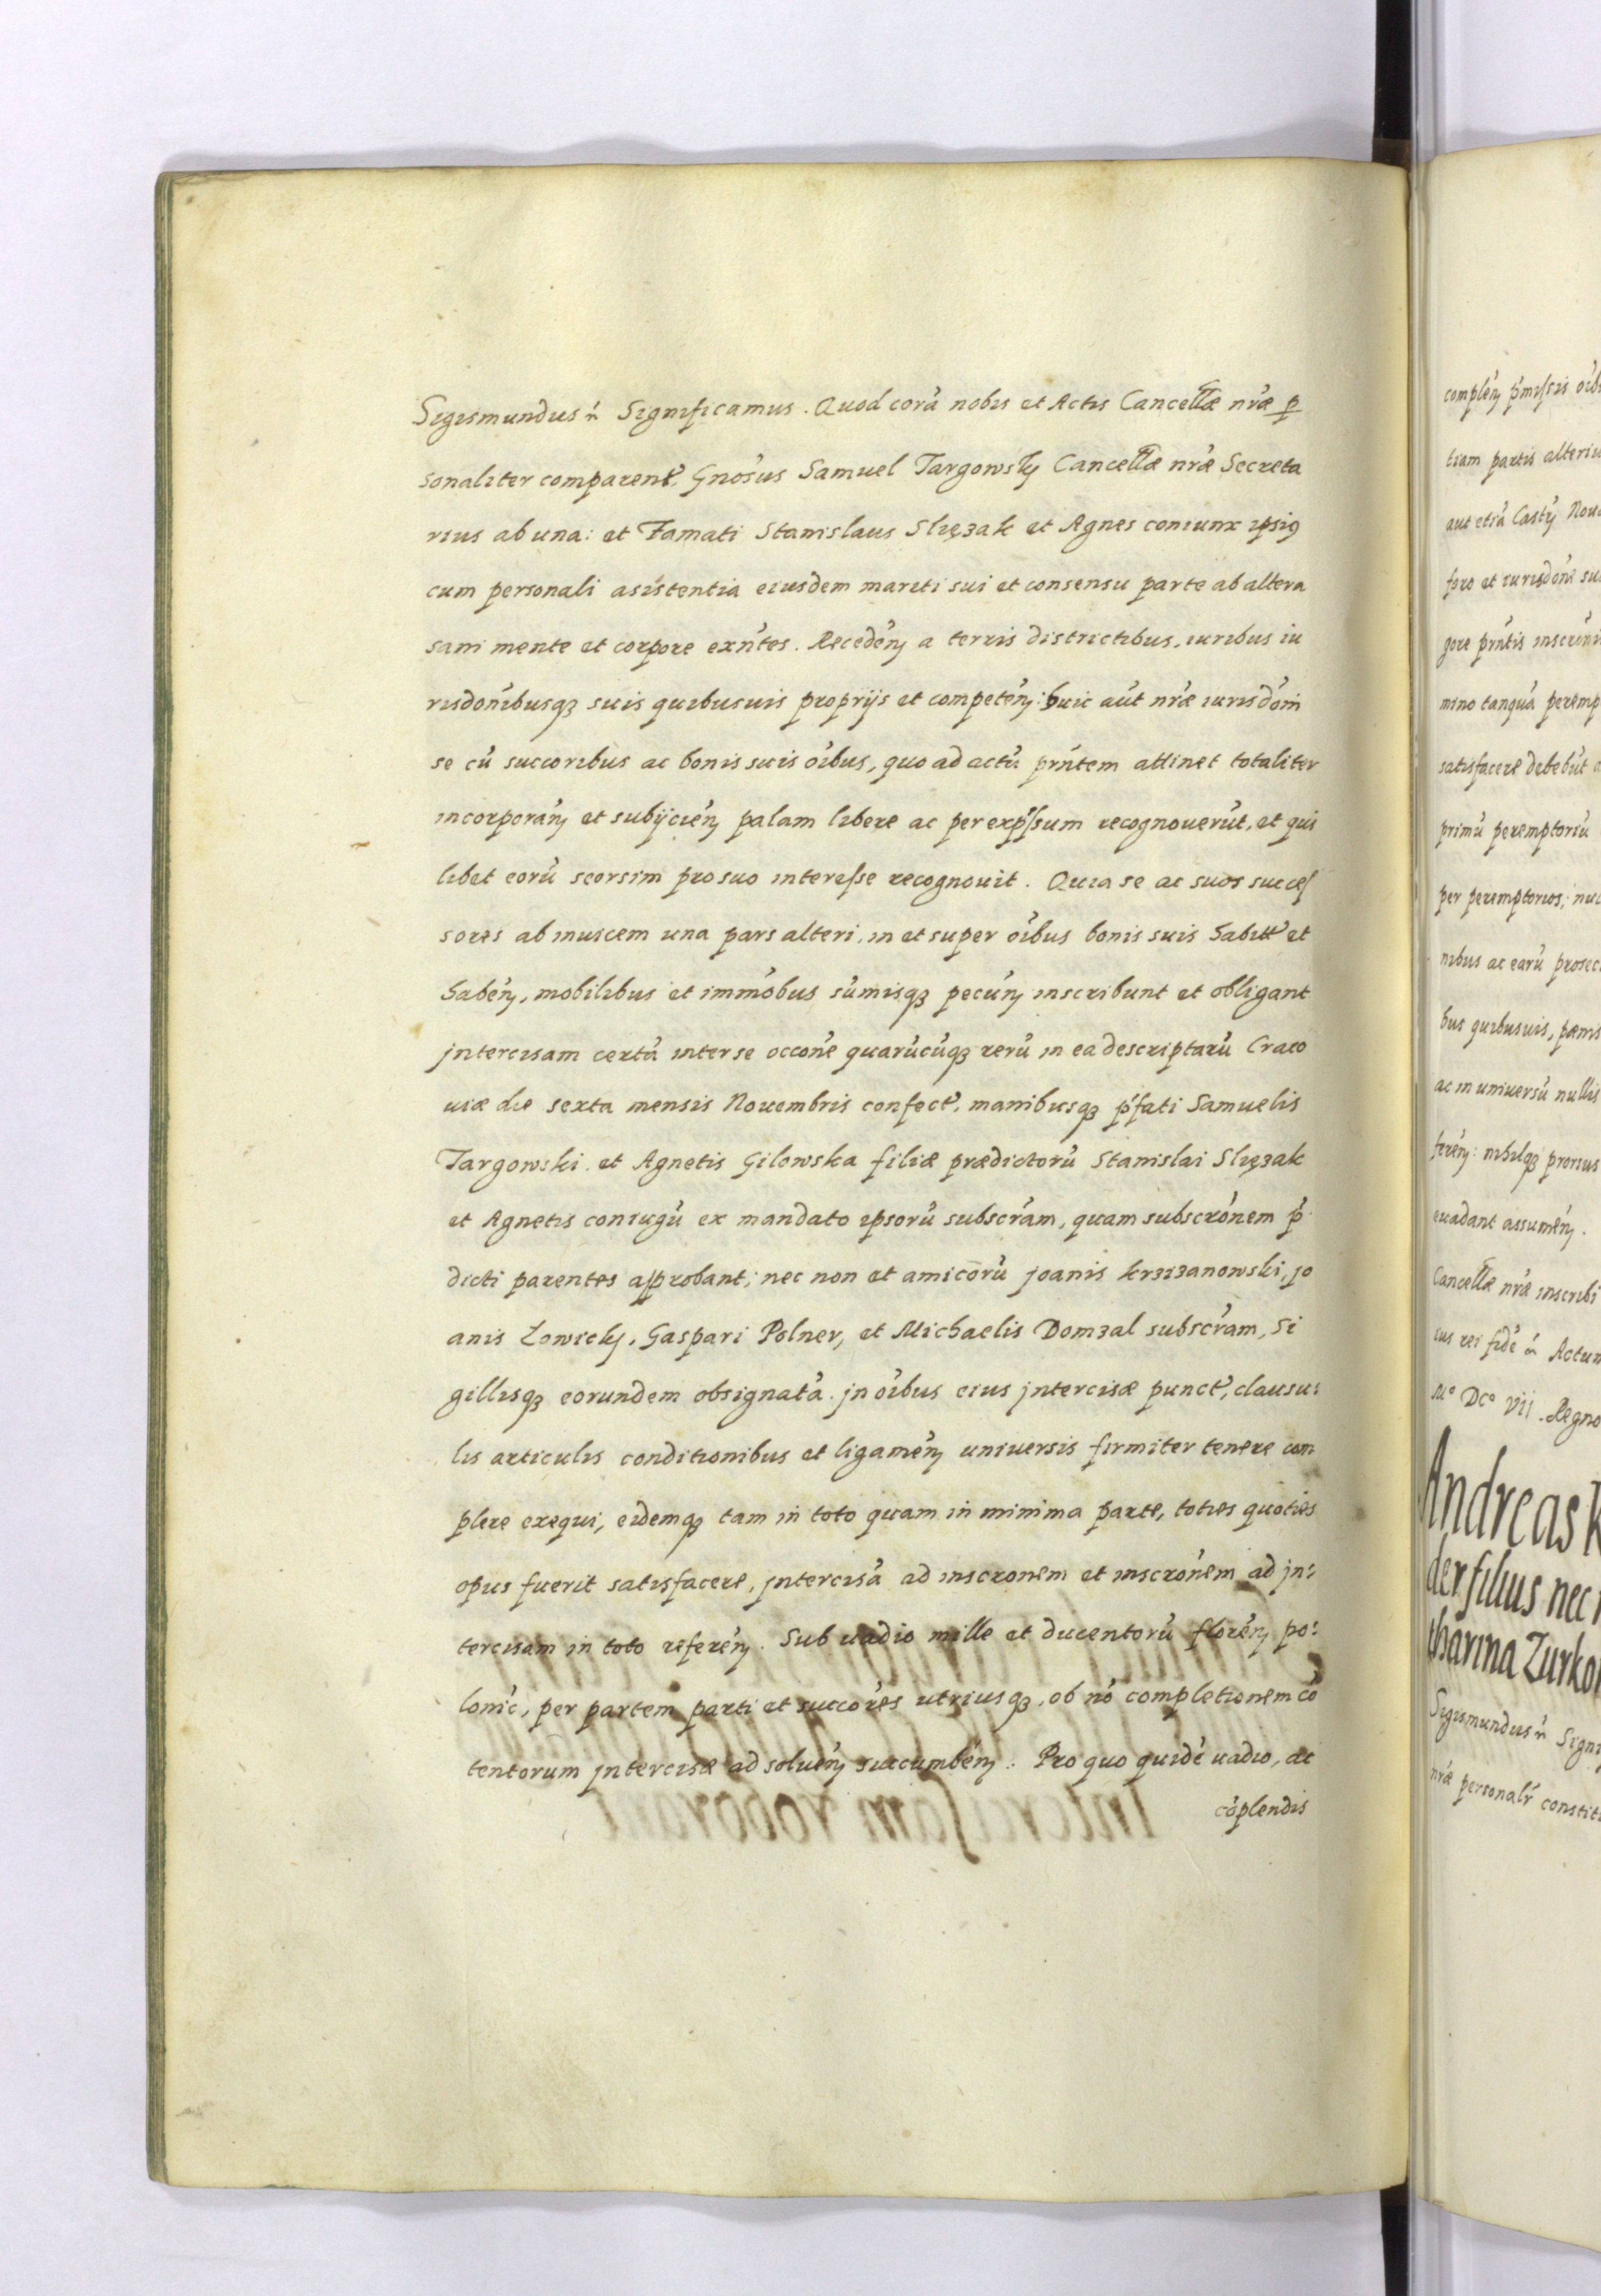 Sigismundus &c. Significamus. Quod corā nobis et Actis Cancellæ nr̃æ p̱
sonaliter comparen̄t. Gnōsus Samuel Targowsky Cancellæ nr̃æ Secreta
rius ab una: et Famati Stanislaus Slięzak et Agnes coniunx ipsiꝰ
cum personali asistentia eiusdem mariti sui et consensu parte ab altera
sani mente et corpore exn̄tes. Recedēn a terris districtibus, iuribus iu
risdonībusqꝫ suis quibusuis proprijs et competēn: huic aūt nr̃æ iurisdōni
se cū succoribus ac bonis suis oībus, quo ad actū prn̄tem attinet totaliter
incorporān et subijciēn palam libere ac per exp̄ſsum recognouerūt, et qui
libet eorū seorsim pro suo intereſse recognouit. Quia se ac suos succeſ
sores ab inuicem una pars alteri, in et super oībus bonis suis habitt̄ et
habēn, mobilibus et immōbus sūmisqꝫ pecūn inscribunt et obligant
jntercisam certā inter se occōne quarūcūqꝫ rerū in ea descriptarū Craco
uiæ die sexta mensis Nouembris confect̄, manibusqꝫ p̄fati Samuelis
Targowski et Agnetis Gilowska filiæ prædictorū Stanislai Slięzak
et Agnetis coniugū ex mandato ipsorū subscr̄am, quam subscrōnem p̄
dicti parentes approbant; nec non et amicorū joanis krzizanowski, jo
anis Łowicky, Gaspari Polner, et Michaelis Domzal subscr̄am, Si
gillisqꝫ eorundem obsignatā. jn oībus eius jntercisæ punct̄, clausu:
lis articulis conditionibus et ligamēn uniuersis firmiter tenere com
plere exequi, eidemqꝫ tam in toto quam in minima parte, toties quoties
opus fuerit satisfacere, jntercisā ad inscronem et inscrōnem ad jn:
tercisam in toto referēn. Sub uadio mille et ducentorū florēn po:
lonīc, per partem parti et succōres utriusqꝫ, ob nō completionem cō
tentorum jntercisæ ad soluēn succumbēn. Pro quo quidē uadio, ac
cōplendis
complēn p̄miſsis oīb
tiam partis alteriu
aut etiā Casty Nou
foro et iurisdōni su
gore prn̄tis inscrōni
mino tanquā peremp
satisfacere debebūt a
primū peremptoriū
per peremptorios; nu
nibus ac earū prosec
bus quibusuis, pœnis
ac in uniuersū nullis
ferēn: nihilqꝫ prorsus
euadant assumēn.
Cancellæ nr̃æ inscribi
ius rei fidē &c. Actum
Mº DCº VII. Regno
Andreas K
der filius nec
tharina Zurko
Sigismundus &c. Signi
nr̃æ personalr̄ constit